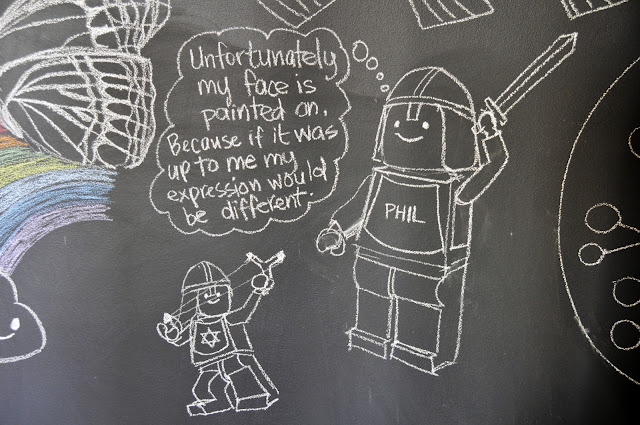 Unfortunately
my face is
painted on.
Because if it was
up to me my
expression would
be different.
PHIL